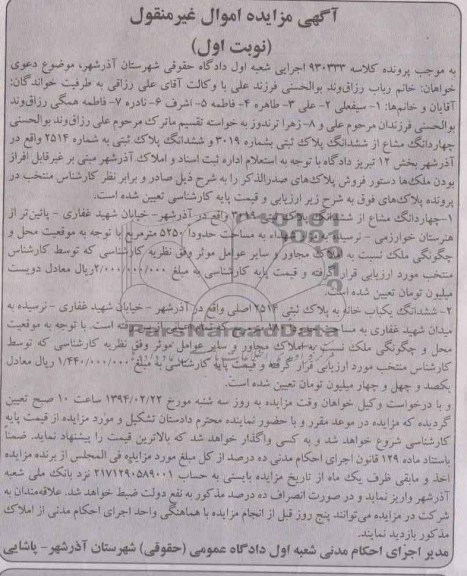 آگهی مزایده اموال غیرمنقول
(نوبت اول)
به موجب پرونده کلاسه ۹۳۰۳۳۳ اجرایی شعبه اول دادگاه حقوقی شهرستان آذرشهر، موضوع دعوی
خواهان: خانم رباب رزاق‌وند بوالحسنی فرزند علی با وکالت آقای علی رزاقی به طرفیت خواندگان:
آقایان و خانم‌ها: ۱- سیفعلی ۲- علی ۳- طاهره ۴- فاطمه ۵- اشرف ۶- نادره ۷- فاطمه همگی رزاق‌وند
بوالحسنی فرزندان مرحوم علی و ۸- زهرا ترندوز به خواسته تقسیم ماترک مرحوم علی رزاق‌وند بوالحسنی
چهاردانگ مشاع از ششدانگ پلاک ثبتی بشماره ۳۰۱۹ و ششدانگ پلاک ثبتی به شماره ۲۵۱۴ واقع در
آذرشهر بخش ۱۲ تبریز دادگاه با توجه به استعلام اداره ثبت اسناد و املاک آذرشهر مبنی بر غیرقابل افراز
بودن ملک‌ها دستور فروش پلاک‌های صدرالذکر را به شرح ذیل صادر و برابر نظر کارشناس منتخب در
پرونده پلاک‌های فوق به شرح زیر ارزیابی و قیمت پایه کارشناسی تعیین شده است.
۱- چهاردانگ مشاع از ششدانگ پلاک ثبتی ۳۰۱۹ واقع در آذرشهر- خیابان شهید غفاری - پائین‌تر از
هنرستان خوارزمی - نرسیده به میدان شهداء به مساحت حدودا ۵۲۵۰ مترمربع با توجه به موقعیت محل و
چگونگی ملک نسبت به املاک مجاور و سایر عوامل موثر وفق نظریه کارشناسی که توسط کارشناس
منتخب مورد ارزیابی قرار گرفته و قیمت پایه کارشناسی به مبلغ ۲/۰۰۰/۰۰۰/۰۰۰ریال معادل دویست
میلیون تومان تعیین شده است.
۲- ششدانگ یکباب خانه به پلاک ثبتی ۲۵۱۴ اصلی واقع در آذرشهر - خیابان شهید غفاری - نرسیده به
میدان شهید غفاری به مساحت است. با توجه به موقعیت
محل و چگونگی ملک نسبت به املاک مجاور و سایر عوامل موثر وفق نظریه کارشناسی که توسط
کارشناس منتخب مورد ارزیابی قرار گرفته و قیمت پایه کارشناسی به مبلغ ۱/۴۴۰/۰۰۰/۰۰۰ ریال معادل
یکصد و چهل و چهار میلیون تومان تعیین شده است.
و با درخواست وکیل خواهان وقت مزایده به روز سه شنبه مورخ ۱۳۹۴/۰۲/۲۲ ساعت ۱۰ صبح تعیین
گردیده که مزایده در موعد مقرر و با حضور نماینده محترم دادستان تشکیل و مورد مزایده از قیمت پایه
کارشناسی شروع خواهد شد و به کسی واگذار خواهد شد که بالاترین قیمت را پیشنهاد نماید. ضمناً
باستناد ماده ۱۲۹ قانون اجرای احکام مدنی ده درصد از کل مبلغ مورد مزایده فی المجلس از برنده مزایده
اخذ و مابقی ظرف یک ماه از تاریخ مزایده بایستی به حساب ۲۱۷۱۲۹۰۵۸۹۰۰۱ نزد بانک ملی شعبه
آذرشهر واریز نماید و در صورت انصراف ده درصد مذکور به نفع دولت ضبط خواهد شد. علاقه‌مندان به
شرکت در مزایده می‌توانند پنج روز قبل از انجام مزایده با هماهنگی واحد اجرای احکام مدنی از املاک
مذکور بازدید نمایند.
مدیر اجرای احکام مدنی شعبه اول دادگاه عمومی (حقوقی) شهرستان آذرشهر- پاشایی